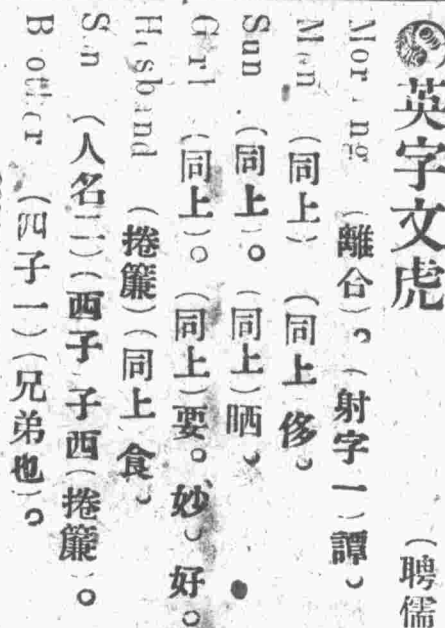 英字文虎 (聘儒
Morning (離合)。(射字一)譚。
Men (同上) (同上 侈。
Sun (同上)。(同上)晒。
Girl (同上)。(同上)要。妙。好。
Husband (捲簾)(同上 食。
Son (人名二)(西子 子西(捲簾)。
Brother (四子一)(兄弟也)。